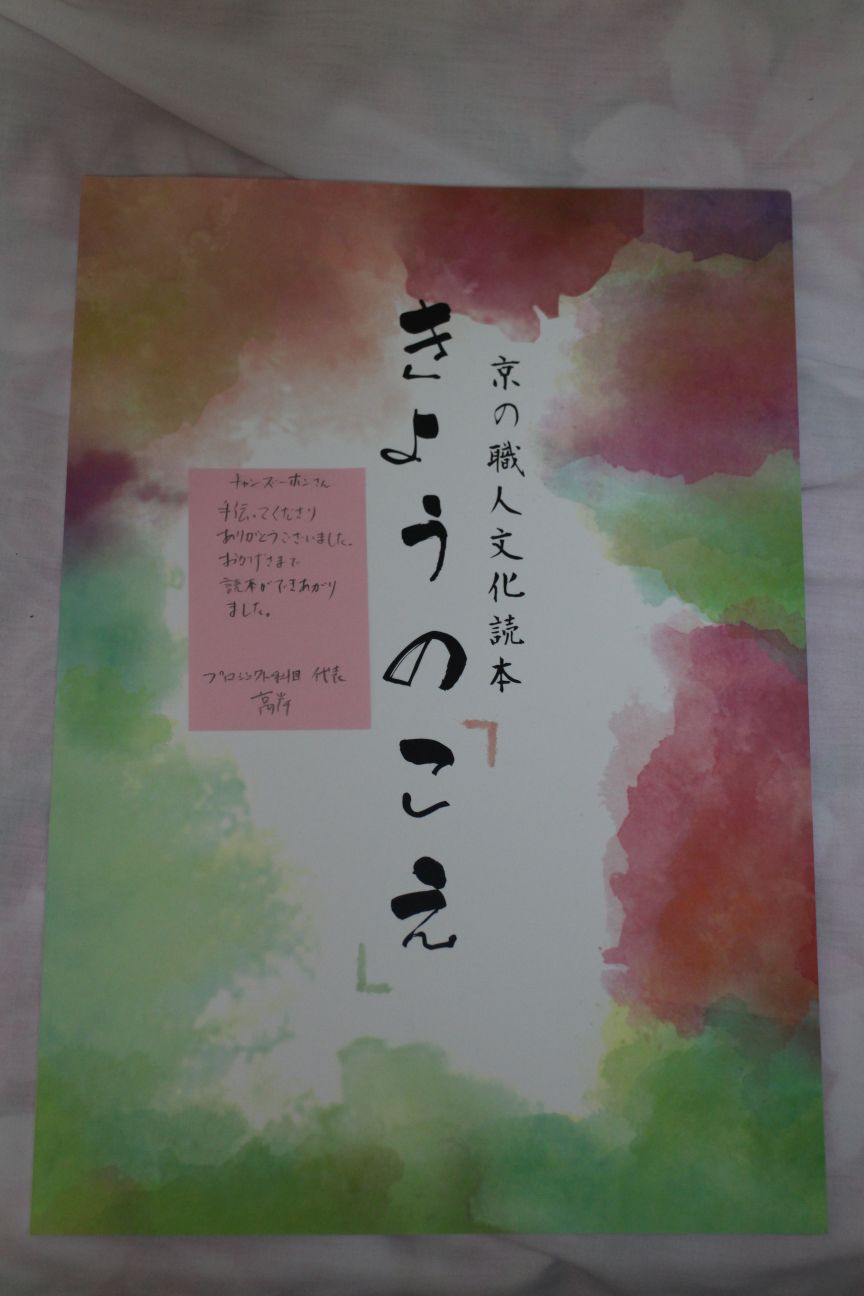 京の職人文化読本
きょうの「こえ」
チャンズーホンさん
手伝ってくださり
ありがとうございました。
おかげさまで
読本ができあがり
ました。
プロジェクト科目 代表
高岸